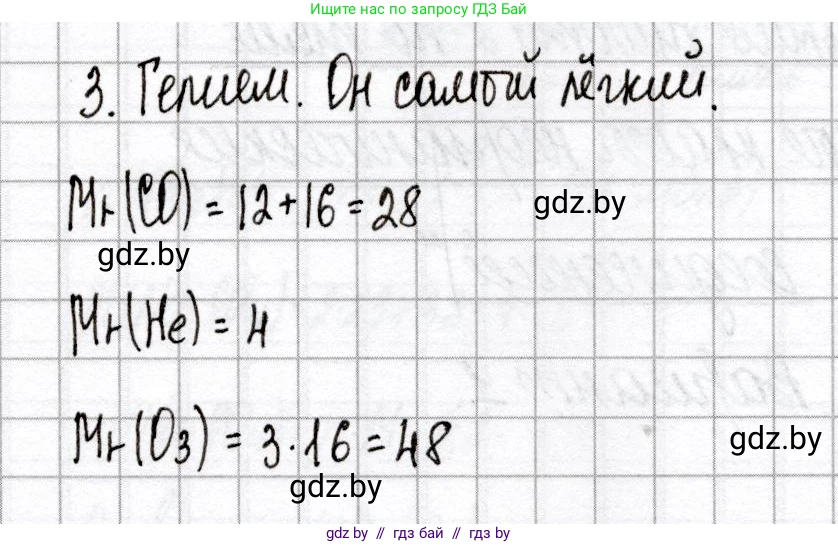 Ищите нас по запросу ГДЗ Бай
3. Гелием. Он самый лёгкий.
Mr(CO) = 12+16 = 28
gdz.by
gdz.by
Mr(He) = 4
Mr(O₃) = 3·16 = 48
gdz.by
gdz.by
gdz.by // гдз бай // гдз by